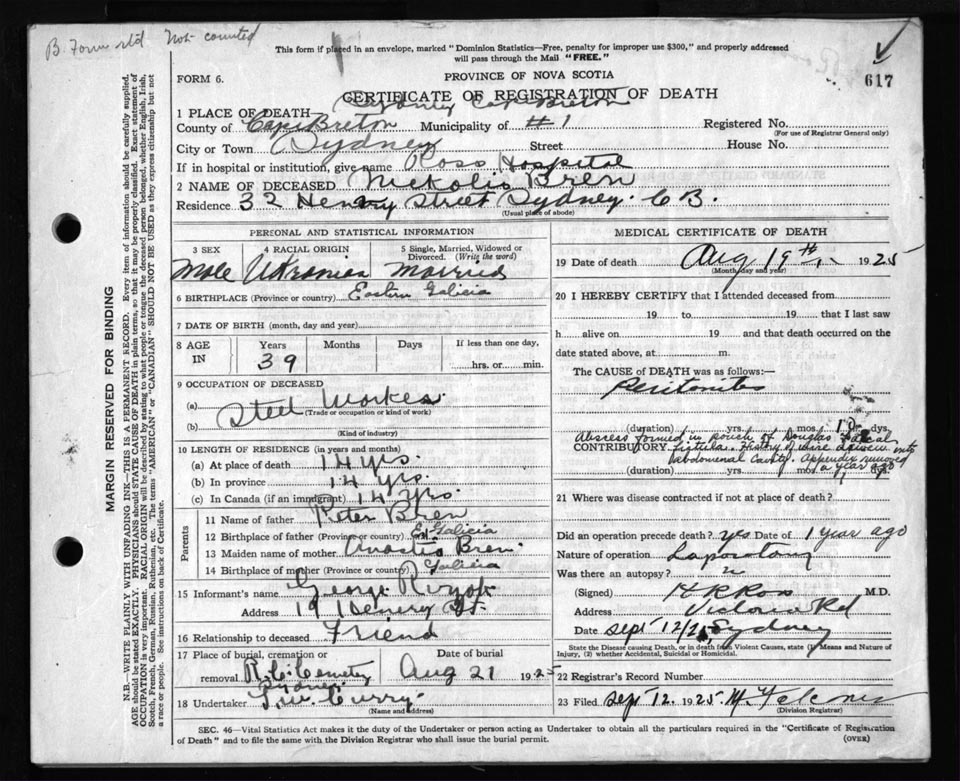 B. Form Not counted
This form if placed in an envelope, marked "Dominion Statistics—Free, penalty for improper use $300," and properly addressed
will pass through the Mail "FREE."
617
FORM 6.
PROVINCE OF NOVA SCOTIA
CERTIFICATE OF REGISTRATION OF DEATH
Sydney Cape Breton
1 PLACE OF DEATH
County of Cape Breton Municipality of #1 Registered No.
(For use of Registrar General only)
City or Town Sydney Street House No.
If in hospital or institution, give name Ross Hospital
2 NAME OF DECEASED Nickolis Bren
Residence 32 Henry Street Sydney. C B.
(Usual place of abode)
PERSONAL AND STATISTICAL INFORMATION
3 SEX 4 RACIAL ORIGIN 5 Single, Married, Widowed or
Divorced. (Write the word)
Male Ukranian Married
6 BIRTHPLACE (Province or country) Eastern Galicia
7 DATE OF BIRTH (month, day and year)
8 AGE IN Years Months Days If less than one day,
39 hrs. or min.
9 OCCUPATION OF DECEASED
(a) Steel Worker
(Trade or occupation or kind of work)
(b)
(Kind of industry)
10 LENGTH OF RESIDENCE (in years and months)
(a) At place of death 14 yrs.
(b) In province 14 yrs.
(c) In Canada (if an immigrant) 14 yrs.
Parents
11 Name of father Peter Bren
12 Birthplace of father (Province or country) E. Galicia
13 Maiden name of mother Bren
14 Birthplace of mother (Province or country) Galicia
15 Informant's name George
Address 19 Henry St.
16 Relationship to deceased Friend
17 Place of burial, cremation or Date of burial
removal R. C. Cemetery Aug 21 1925
Sydney
18 Undertaker Curry
(Name and address)
MEDICAL CERTIFICATE OF DEATH
19 Date of death Aug 19th 1925
(Month, day and year)
20 I HEREBY CERTIFY that I attended deceased from
19 to 19 that I last saw
h alive on 19 and that death occurred on the
date stated above, at m.
The CAUSE of DEATH was as follows:—
Peritonitis
(duration) yrs. mos. dys.
Abscess formed in pouch of Douglas Faecal
CONTRIBUTORY fistula. History of into
abdomenal Cavity. Appendix removed
(duration) yrs. a year ago dys.
21 Where was disease contracted if not at place of death?
Did an operation precede death? yes Date of 1 year ago
Nature of operation
Was there an autopsy?
(Signed) Ross M.D.
Address Victoria Rd
Date Sept 12/25 Sydney
State the Disease causing Death, or in death from Violent Causes, state (1) Means and Nature of
Injury, (2) whether Accidental, Suicidal or Homicidal.
22 Registrar's Record Number
23 Filed Sept 12. 1925
(Division Registrar)
SEC. 46—Vital Statistics Act makes it the duty of the Undertaker or person acting as Undertaker to obtain all the particulars required in the "Certificate of Registration
of Death" and to file the same with the Division Registrar who shall issue the burial permit.
(OVER)
MARGIN RESERVED FOR BINDING
N.B.—WRITE PLAINLY WITH UNFADING INK—THIS IS A PERMANENT RECORD. Every item of information should be carefully supplied.
AGE should be stated EXACTLY. PHYSICIANS should STATE CAUSE OF DEATH in plain terms, so that it may be properly classified. Exact statement of
OCCUPATION is very important. RACIAL ORIGIN will be described by stating to what people or tongue the deceased person belonged, whether English, Irish,
Scotch, French, German, Russian, Ruthenian, etc. The terms "AMERICAN" or "CANADIAN" SHOULD NOT BE USED as they express citizenship but not
a race or people. See instructions on back of Certificate.